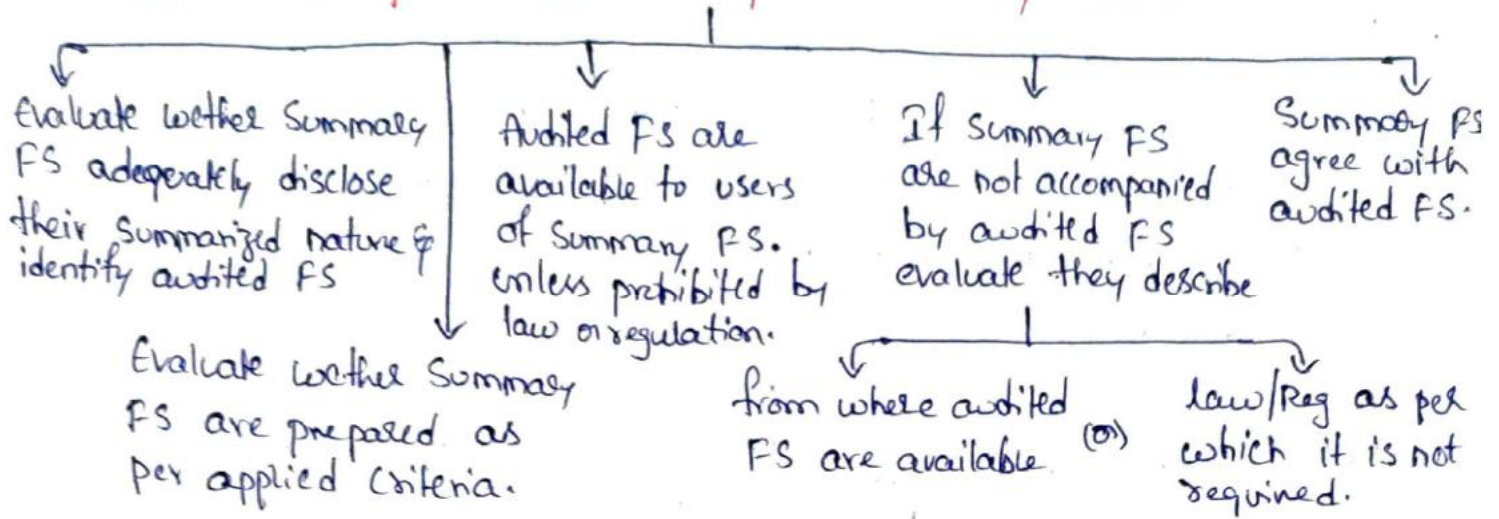 Evaluate wether Summary
FS adequately disclose
their summarized nature &
identify audited FS
Evaluate wether Summary
FS are prepared as
per applied Criteria.
Audited FS are
available to users
of Summary FS.
unless prohibited by
law or regulation.
If summary FS
are not accompanied
by audited FS
evaluate they describe
from where audited
FS are available
(or)
law/Reg as per
which it is not
required.
Summary FS
agree with
audited FS.